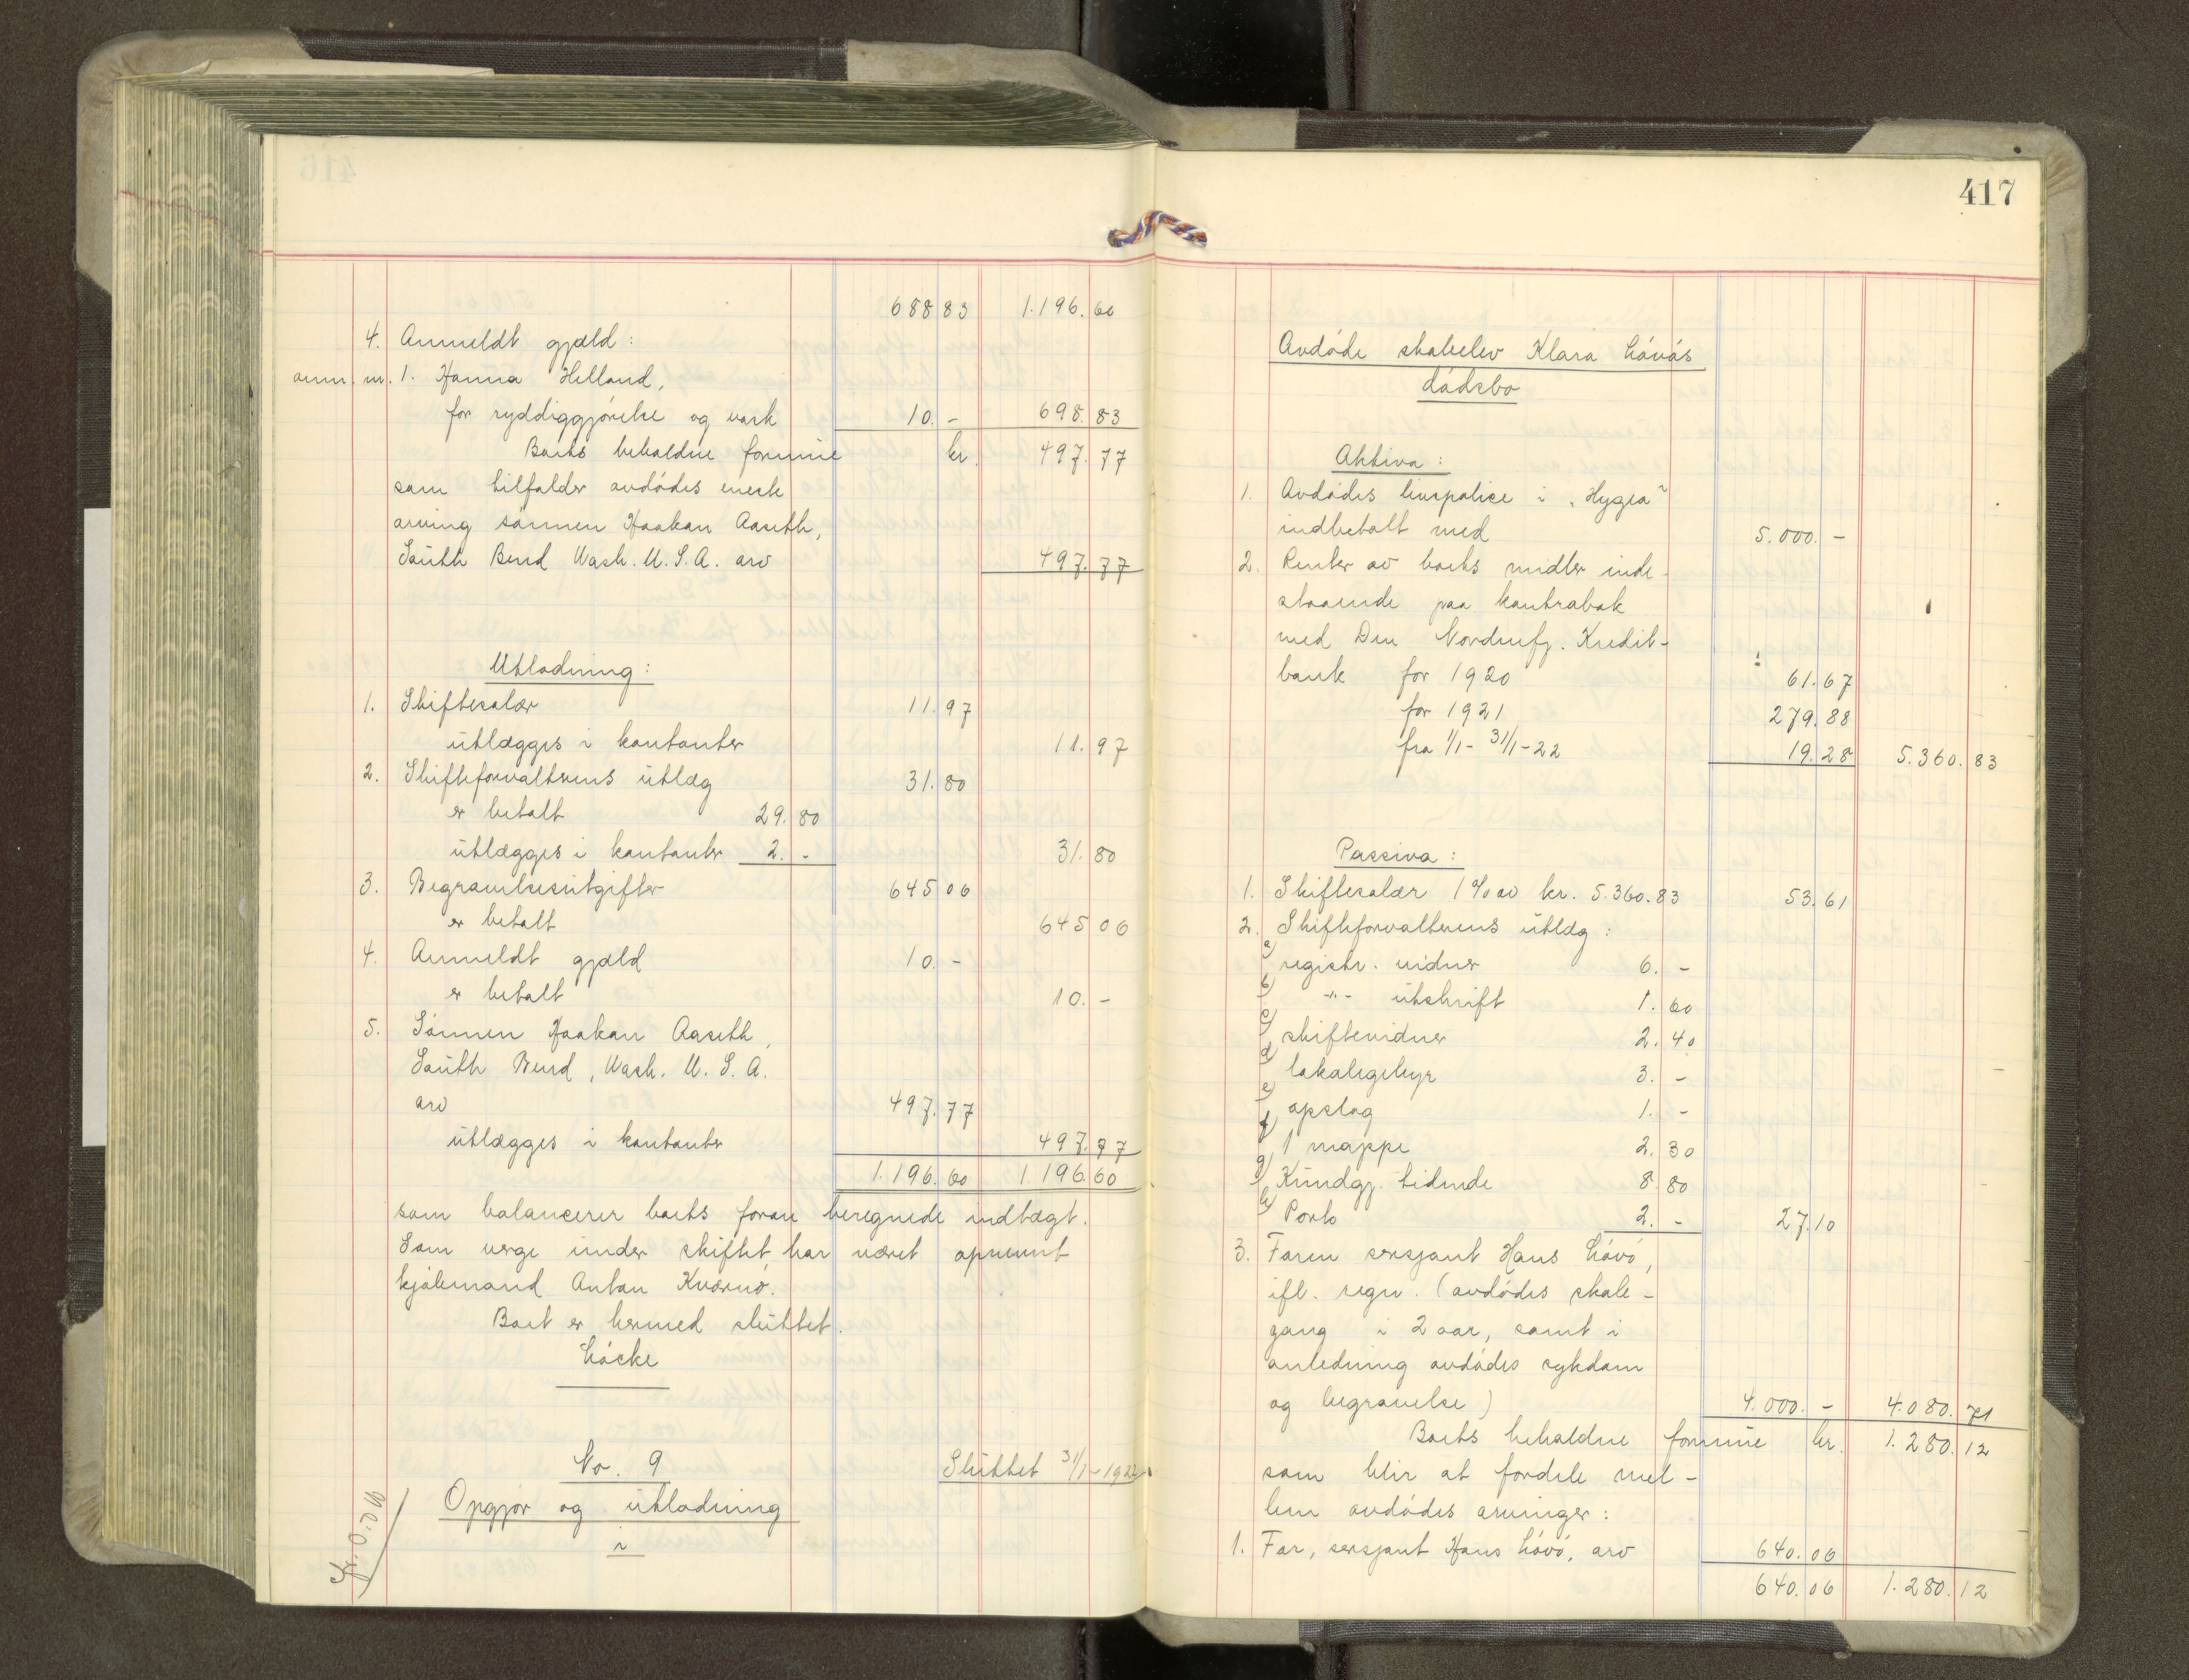 416
688 83 1.196.60
4. Anmeldt gjæld:
anm. nr. 1. Hanna Helland,
for ryddiggjørelse og vask 10.- 698.83
Boets beholdne formue kr. 497.77
som tilfalder avdødes eneste
arving sønnen Haakon Aaseth,
South Bend Wash. U.S.A. arv 497.77
Utlodning:
1. Skiftesalær 11.97
utlægges i kontanter 11.97
2. Skifteforvalterens utlæg 31.80
er betalt 29.80
utlægges i kontanter 2.- 31.80
3. Begravelsesutgifter 645 06
er betalt 645 06
4. Anmeldt gjæld 10.-
er betalt 10.-
5. Sønnen Haakon Aaseth,
South Bend, Wash. U.S.A.
arv 497.77
utlægges i kontanter 497.77
1.196.60 1.196.60
som balancerer boets foran beregnede indtægt.
Som verge under skiftet har været opnevnt
kjøbmand Anton Kværnø.
Boet er hermed sluttet.
Løcke
No. 9 Sluttet 31/1-1922
Opgjør og utlodning
i
417
Avdøde skoleelev Klara Løvås
dødsbo
Aktiva:
1. Avdødes livspolice i "Hygea"
indbetalt med 5.000.-
2. Renter av boets midler inde-
staaende paa kontrabok
med Den Nordenfj. Kredit-
bank for 1920 61.67
for 1921 279.88
fra 1/1- 31/1-22 19.28 5.360.83
Passiva:
1. Skiftesalær 1% av kr. 5.360.83 53.61
2. Skifteforvalterens utlæg:
a) registr. vidner 6.-
b) -"- utskrift 1.60
c) skiftevidner 2.40
d) lokalegebyr 3.-
e) opslag 1.-
f) 1 mappe 2.30
g) Kundgj. tidende 8.80
h) Porto 2.- 27.10
3. Faren sersjant Hans Løvå,
ifl. regn. (avdødes skole-
gang i 2 aar, samt i
anledning avdødes sykdom
og begravelse) 4.000.- 4.080.71
Boets beholdne formue kr. 1.280.12
som blir at fordele mel-
lem avdødes arvinger:
1. Far, sersjant Hans Løvå, arv 640.06
640.06 1.280.12